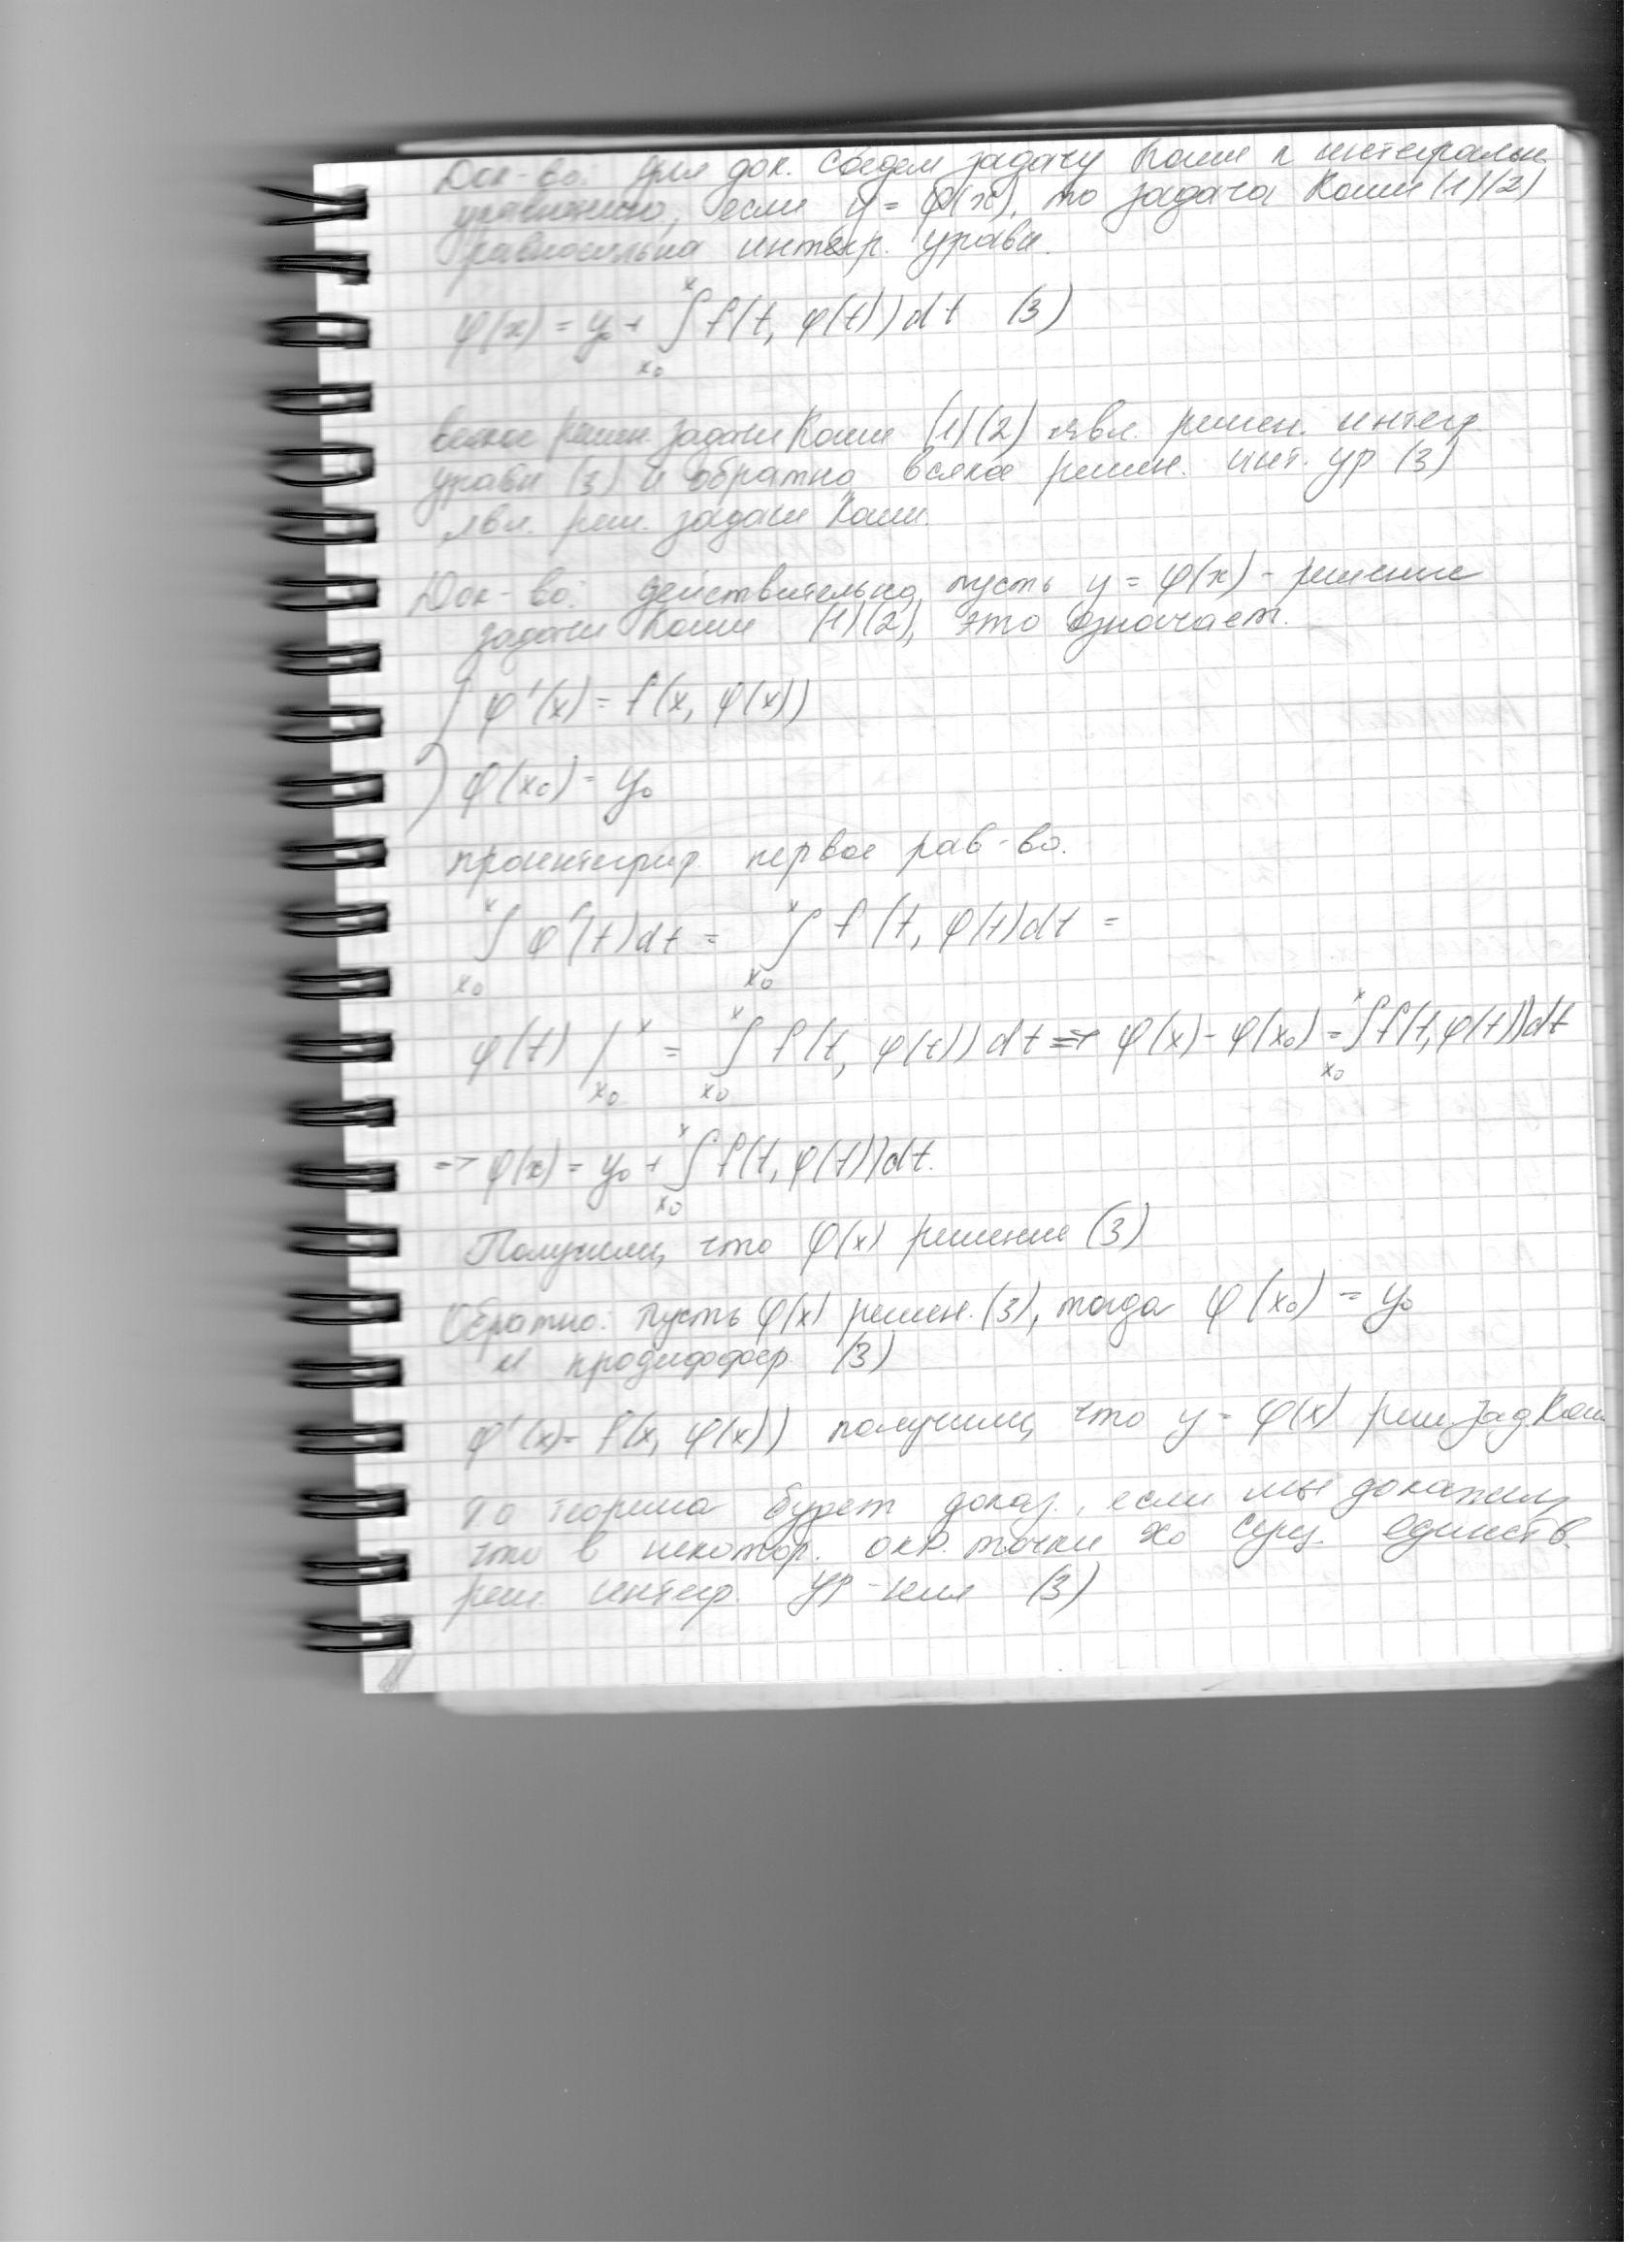 Док-во: для док. сведем задачу Коши к интегральн.
уравнению, если y = φ(x), то задача Коши (1)(2)
равносильна интегр. уравн.
φ(x) = y₀ + ∫ₓ₀ˣ f(t, φ(t))dt (3)
всякое решен. задачи Коши (1)(2) явл. решен. интегр
уравн (3) и обратно, всякое решен. инт. ур (3)
явл. реш. задачи Коши.
Док-во: действительно, пусть y = φ(x) - решение
задачи Коши (1)(2), это означает.
{ φ'(x) = f(x, φ(x))
φ(x₀) = y₀
проинтегрир. первое рав-во.
∫ₓ₀ˣ φ'(t)dt = ∫ₓ₀ˣ f(t, φ(t)dt =
φ(t) |ₓ₀ˣ = ∫ₓ₀ˣ f(t, φ(t))dt => φ(x) - φ(x₀) = ∫ₓ₀ˣ f(t, φ(t))dt
=> φ(x) = y₀ + ∫ₓ₀ˣ f(t, φ(t))dt.
Получили, что φ(x) решение (3)
Обратно: пусть φ(x) решен. (3), тогда φ(x₀) = y₀
и продифффер (3)
φ'(x) = f(x, φ(x)) получили, что y = φ(x) реш. зад. Кош.
Т.о теорема будет доказ., если мы докажем,
что в некотор. окр. точки x₀ сущ. единств.
реш. интегр. ур-ния (3)